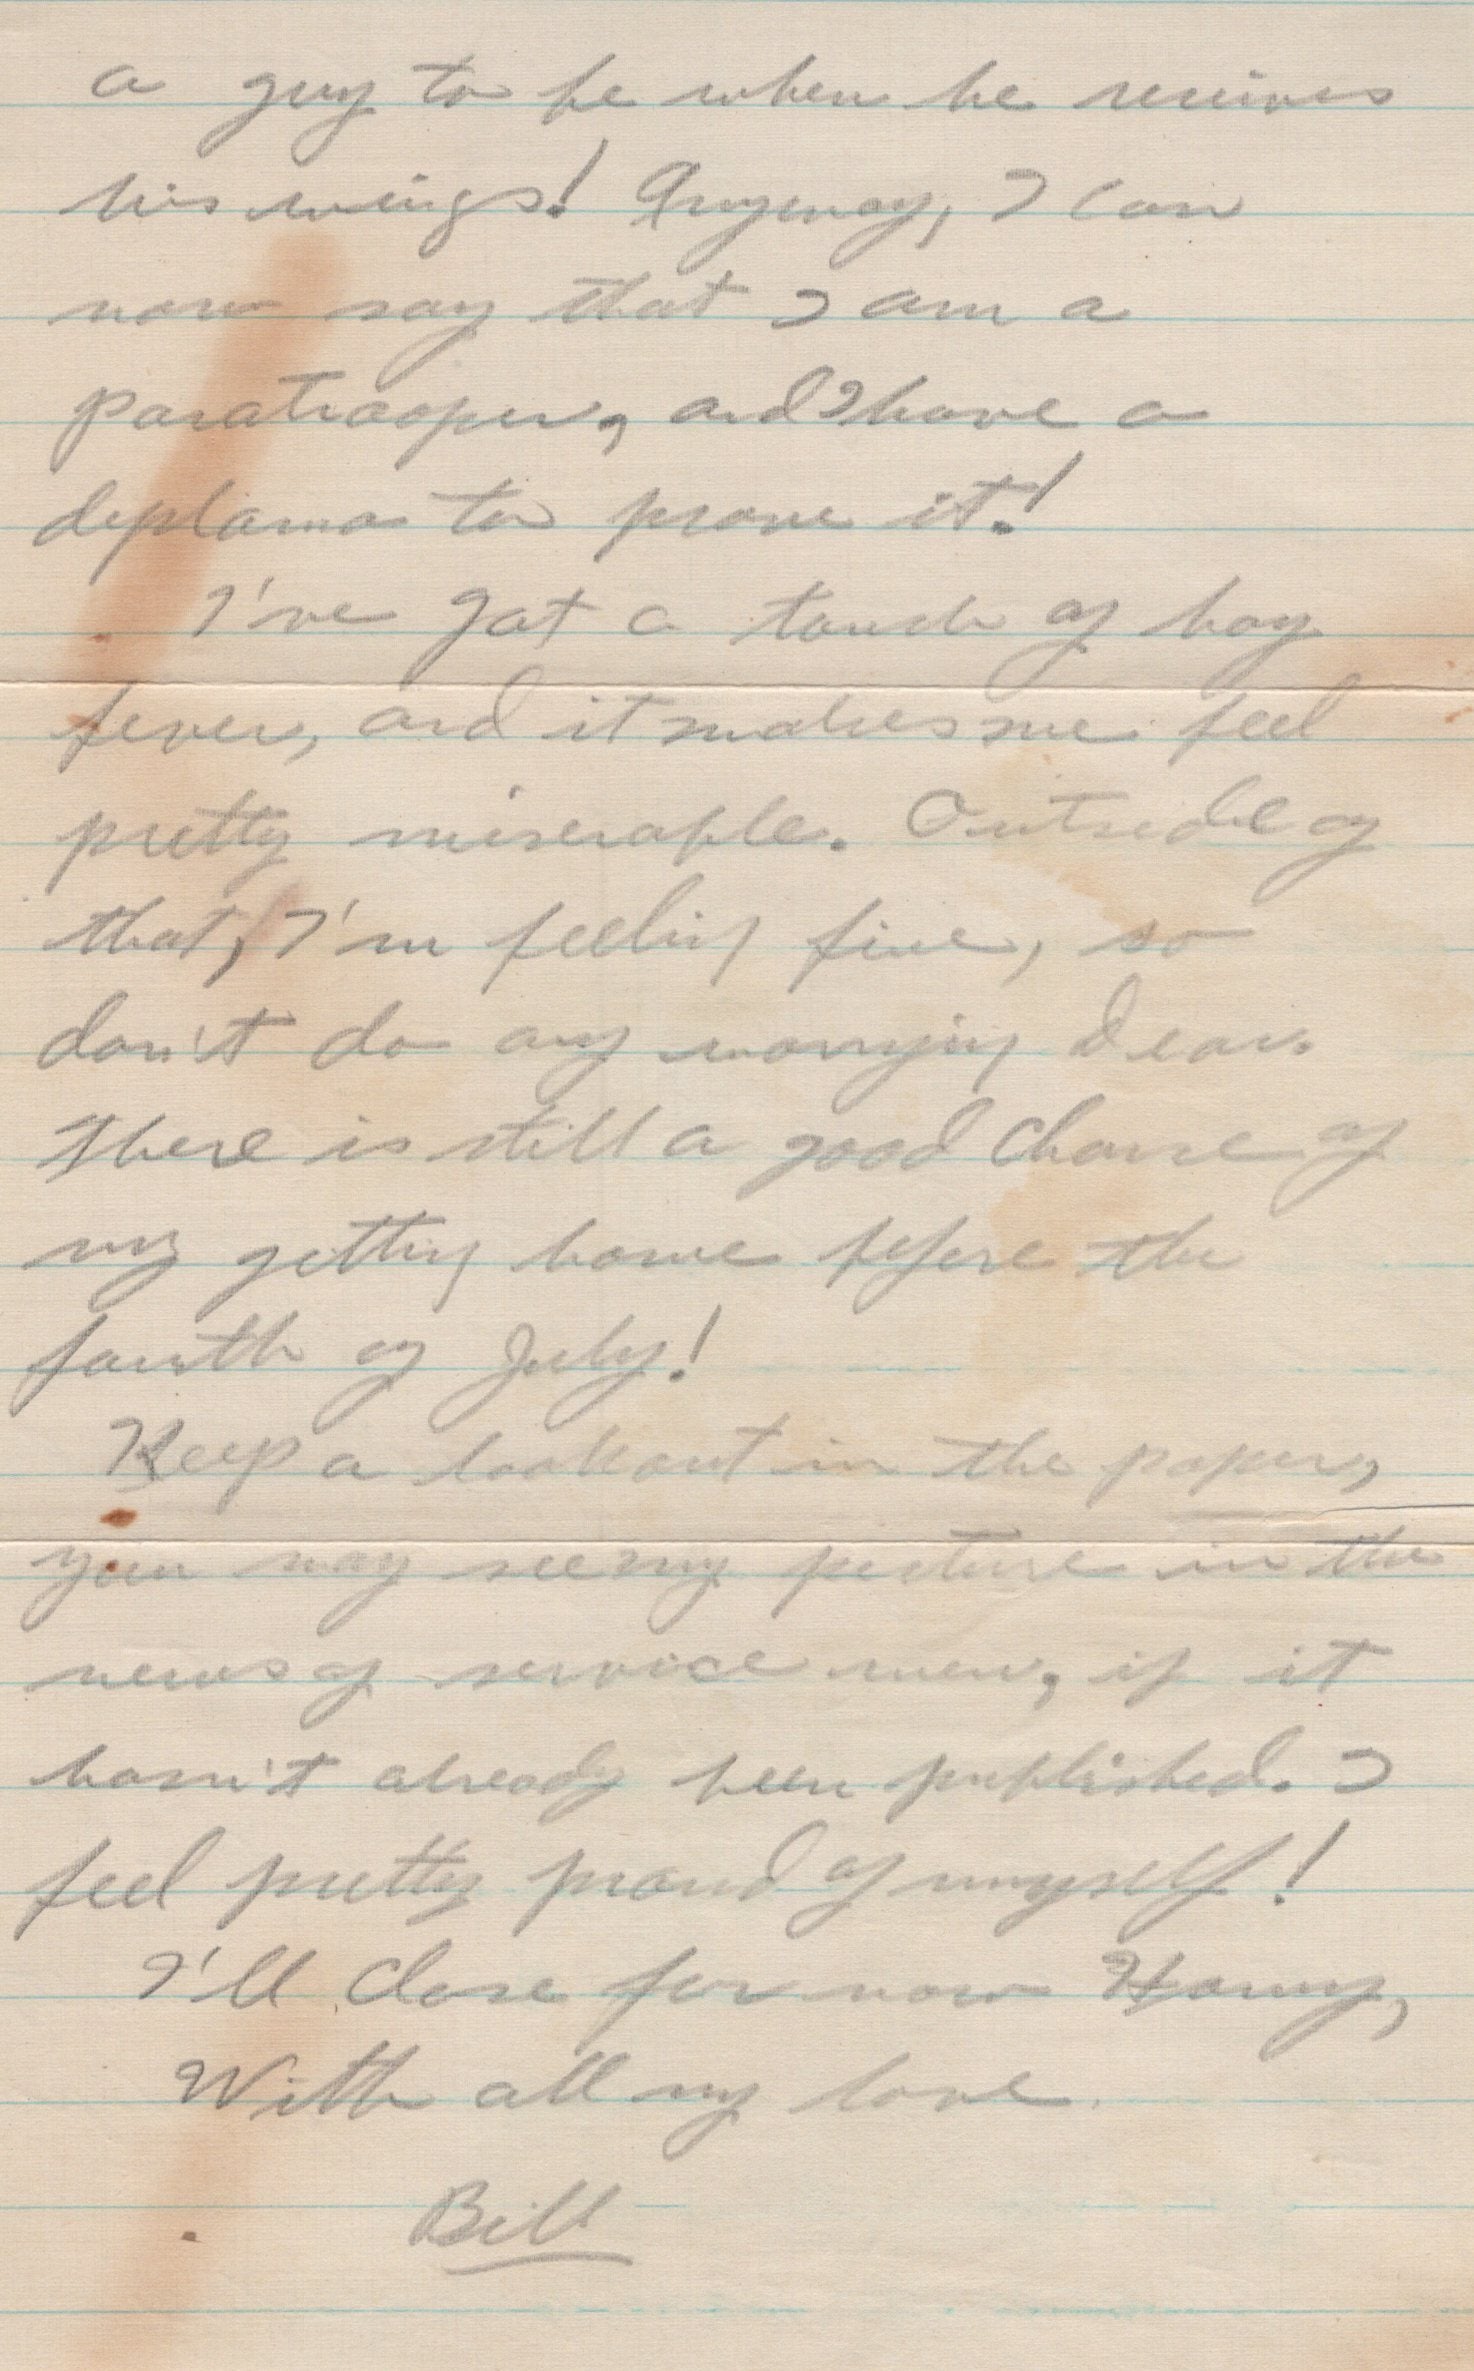 a guy to be when he receives
his wings! Anyway, I can
now say that I am a
paratrooper, and I have a
deplama to prove it!
I've got a touch of hay
fever, and it makes me feel
pretty miserable. Outside of
that, I'm feeling fine, so
don't do any worrying Dear.
There is still a good chance of
my getting home before the
fourth of July!
Keep a lookout in the paper,
you may see my picture in the
news of service men, if it
hasn't already been published. I
feel pretty proud of myself!
I'll close for now Honey,
With all my love.
Bill